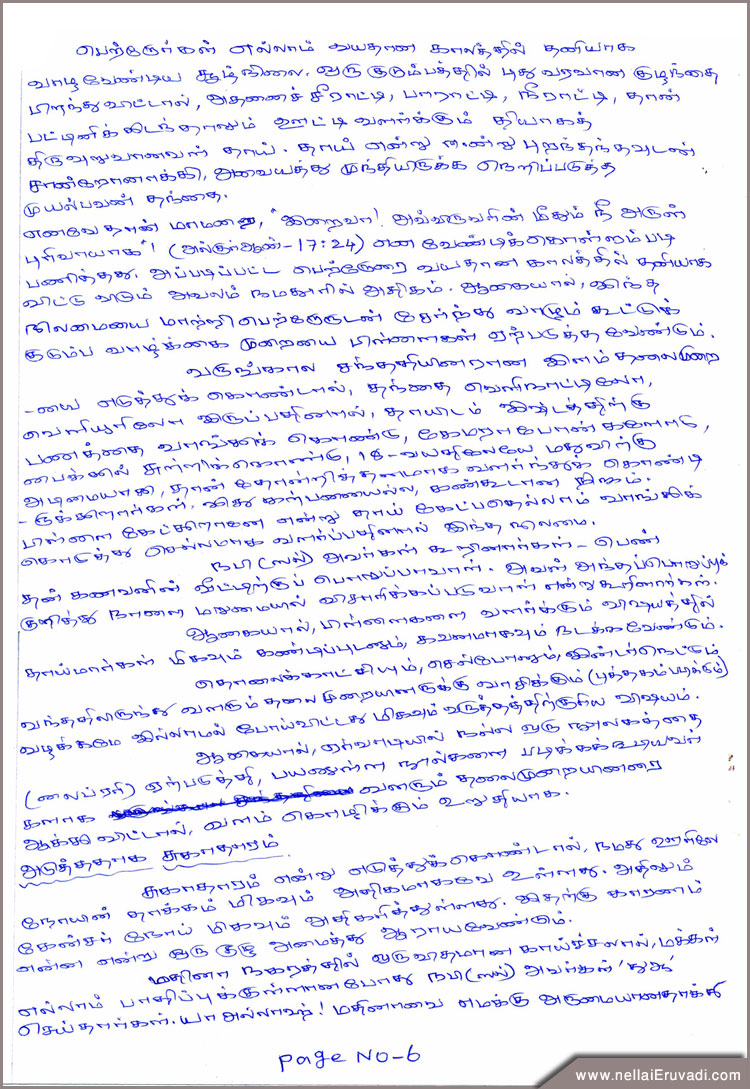 பெற்றோர்கள் எல்லாம் வயதான காலத்தில் தனியாக
வாழவேண்டிய சூழ்நிலை. ஒரு குடும்பத்தில் புது வரவான குழந்தை
பிறந்து விட்டால், அதனைச் சீராட்டி, பாராட்டி, நீராட்டி, தான்
பட்டினி கிடந்தாலும் ஊட்டி வளர்க்கும் தியாகத்
திருவுருவானவள் தாய். தாய் என்று ஈன்று புறந்தந்தவுடன்
சான்றோனாக்கி, அவையத்து முந்தியிருக்க நெறிப்படுத்த
முயல்பவன் தந்தை.
எனவே தான் மாமறை, "இறைவா! அவ்விருவரின் மீதும் நீ அருள்
புரிவாயாக"! (அல்குர்ஆன் - 17:24) என வேண்டிக்கொள்ளும்படி
பணித்தது. அப்படிப்பட்ட பெற்றோரை வயதான காலத்தில் தனியாக
விட்டு விடும் அவலம் நமதூரில் அதிகம். ஆகையால், இந்த
நிலமையை மாற்றி பெற்றோருடன் சேர்ந்து வாழும் கூட்டுக்
குடும்ப வாழ்க்கை முறையை பிள்ளைகள் ஏற்படுத்த வேண்டும்.
வருங்கால சந்ததியினரான இளம் தலைமுறை
-யை எடுத்துக் கொண்டால், தந்தை வெளிநாட்டிலோ,
வெளியூரிலோ இருப்பதினால், தாயிடம் இஷ்டத்திற்கு
பணத்தை வாங்கிக் கொண்டு, கேமராபோன்களோடு,
பைக்கில் சுற்றிக்கொண்டு, 18-வயதிலேயே மதுவிற்கு
அடிமையாகி, தான் தோன்றித்தனமாக வளர்ந்துக் கொண்டி
-ருக்கிறார்கள். இது கற்பனையல்ல, கண்கூடான நிஜம்.
பிள்ளை கேட்கிறானே என்று தாய் கேட்பதெல்லாம் வாங்கிக்
கொடுத்து செல்லமாக வளர்ப்பதினால் இந்த நிலமை.
நபி (ஸல்) அவர்கள் கூறினார்கள் - பெண்
தன் கணவனின் வீட்டிற்குப் பொறுப்பாவாள். அவள் அந்தப்பொறுப்புக்
குறித்து நாளை மறுமையில் விசாரிக்கப்படுவாள் என்று கூறினார்கள்.
ஆகையால், பிள்ளைகளை வளர்க்கும் விஷயத்தில்
தாய்மார்கள் மிகவும் கண்டிப்புடனும், கவனமாகவும் நடக்க வேண்டும்.
தொலைக்காட்சியும், செல்போனும், இன்டர்நெட்டும்
வந்ததிலிருந்து வளரும் தலைமுறையினருக்கு வாசிக்கும் (புத்தகம் படிக்கும்)
வழக்கமே இல்லாமல் போய்விட்டது மிகவும் வருத்தத்திற்குரிய விஷயம்.
ஆகையால், ஏர்வாடியில் நல்ல ஒரு நூலகத்தை
(லைப்ரரி) ஏற்படுத்தி, பயனுள்ள நூல்களை படிக்கக்கூடியவர்
களாக வளரும் தலைமுறையினரை
ஆக்கி விட்டால், வளம் கொழிக்கும் உறுதியாக.
அடுத்ததாக சுகாதாரம்.
சுகாதாரம் என்று எடுத்துக்கொண்டால், நமது ஊரிலே
நோயின் தாக்கம் மிகவும் அதிகமாகவே உள்ளது. அதிலும்
கேன்சர் நோய் மிகவும் அதிகரித்துள்ளது. அதற்கு காரணம்
என்ன என்று ஒரு குழு அமைத்து ஆராயவேண்டும்.
மதினா நகரத்தில் ஒருவிதமான காய்ச்சலால், மக்கள்
எல்லாம் பாதிப்புக்குள்ளானபோது நபி (ஸல்) அவர்கள் 'துஆ'
செய்தார்கள். யா அல்லாஹ்! மதினாவை எமக்கு அருமையானதாக்கி
Page No-6
www.nellaiEruvadi.com